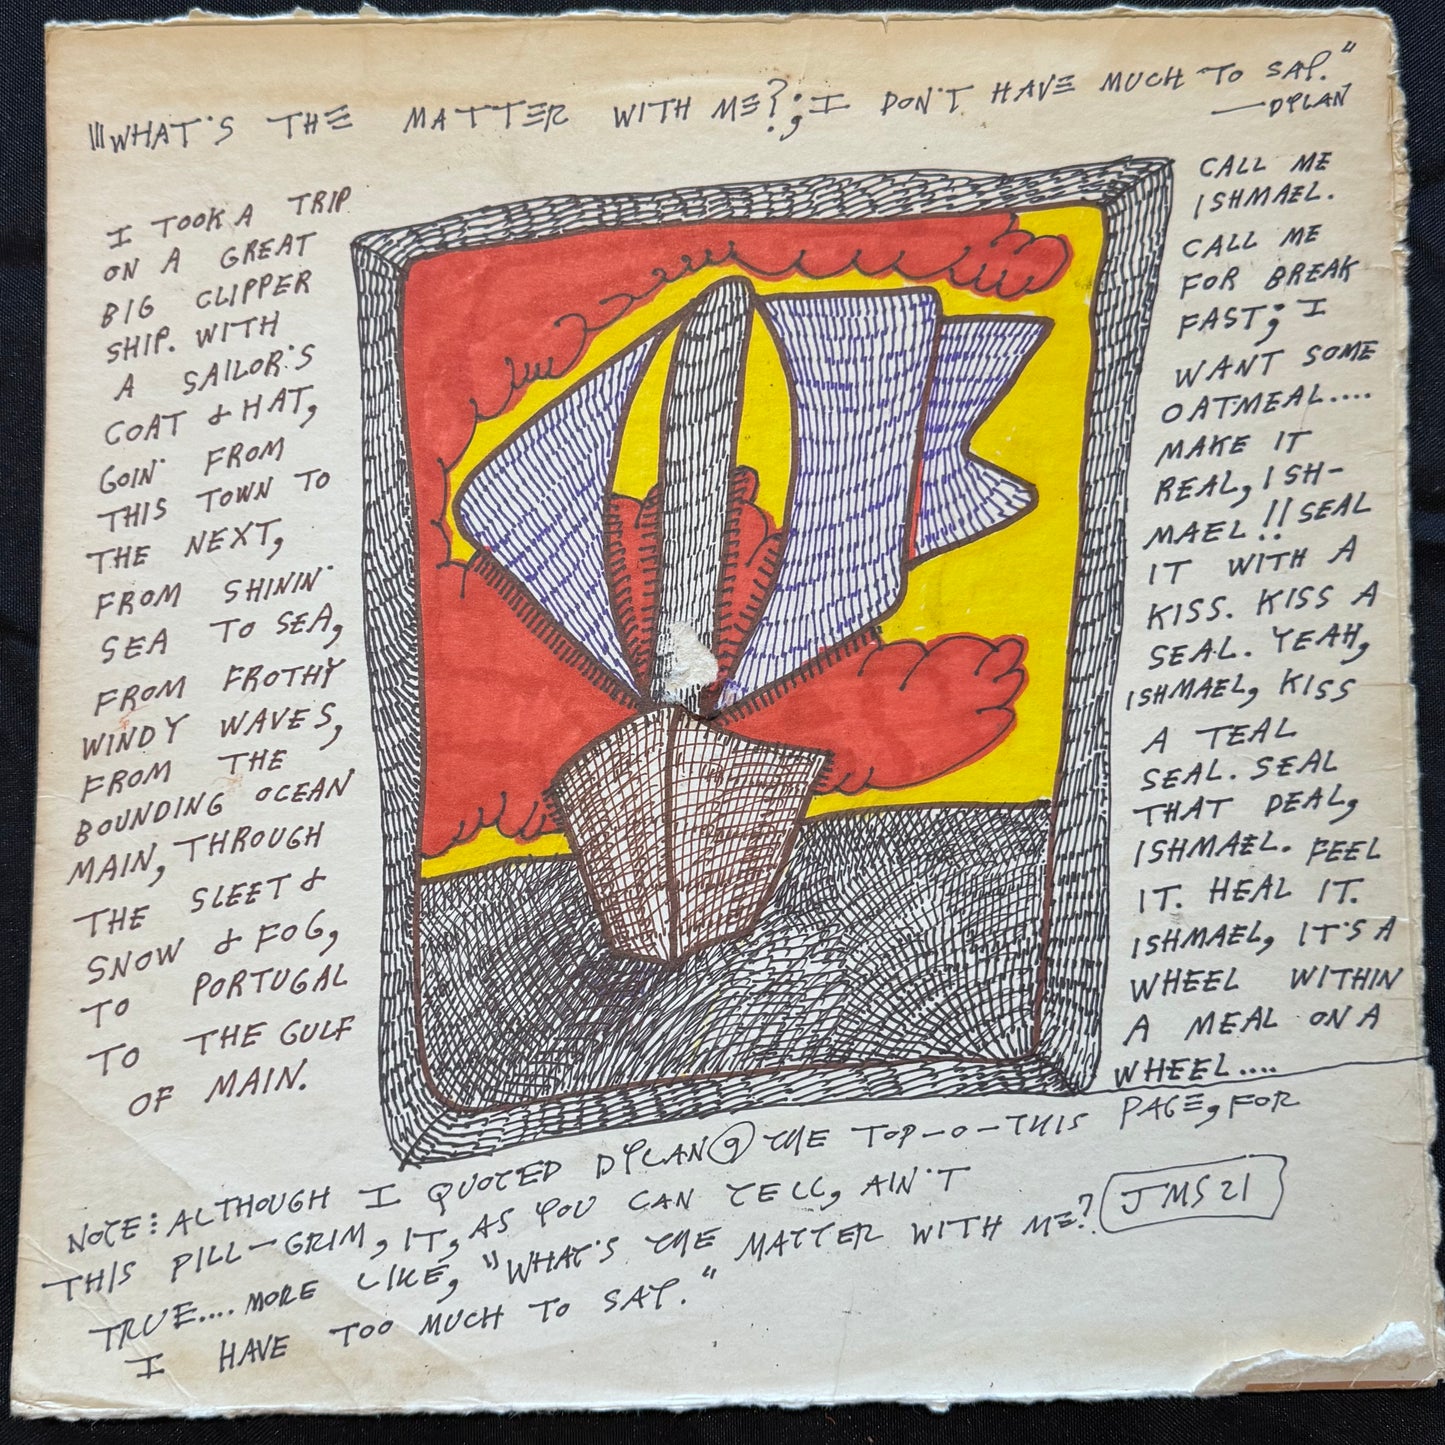 "WHAT'S THE MATTER WITH ME?; I DON'T HAVE MUCH TO SAY."
—DYLAN
I TOOK A TRIP
ON A GREAT
BIG CLIPPER
SHIP. WITH
A SAILOR'S
COAT & HAT,
GOIN' FROM
THIS TOWN TO
THE NEXT,
FROM SHININ'
SEA TO SEA,
FROM FROTHY
WINDY WAVES,
FROM THE
BOUNDING OCEAN
MAIN, THROUGH
THE SLEET &
SNOW & FOG,
TO PORTUGAL
TO THE GULF
OF MAIN.
CALL ME
ISHMAEL.
CALL ME
FOR BREAK
FAST; I
WANT SOME
OATMEAL....
MAKE IT
REAL, ISH-
MAEL!! SEAL
IT WITH A
KISS. KISS A
SEAL. YEAH,
ISHMAEL, KISS
A TEAL
SEAL. SEAL
THAT DEAL,
ISHMAEL. FEEL
IT. HEAL IT.
ISHMAEL, IT'S A
WHEEL WITHIN
A MEAL ON A
WHEEL....
NOTE: ALTHOUGH I QUOTED DYLAN @ THE TOP-O-THIS PAGE, FOR
THIS PILL-GRIM, IT, AS YOU CAN TELL, AIN'T
TRUE.... MORE LIKE, "WHAT'S THE MATTER WITH ME?
I HAVE TOO MUCH TO SAY."
JMS21